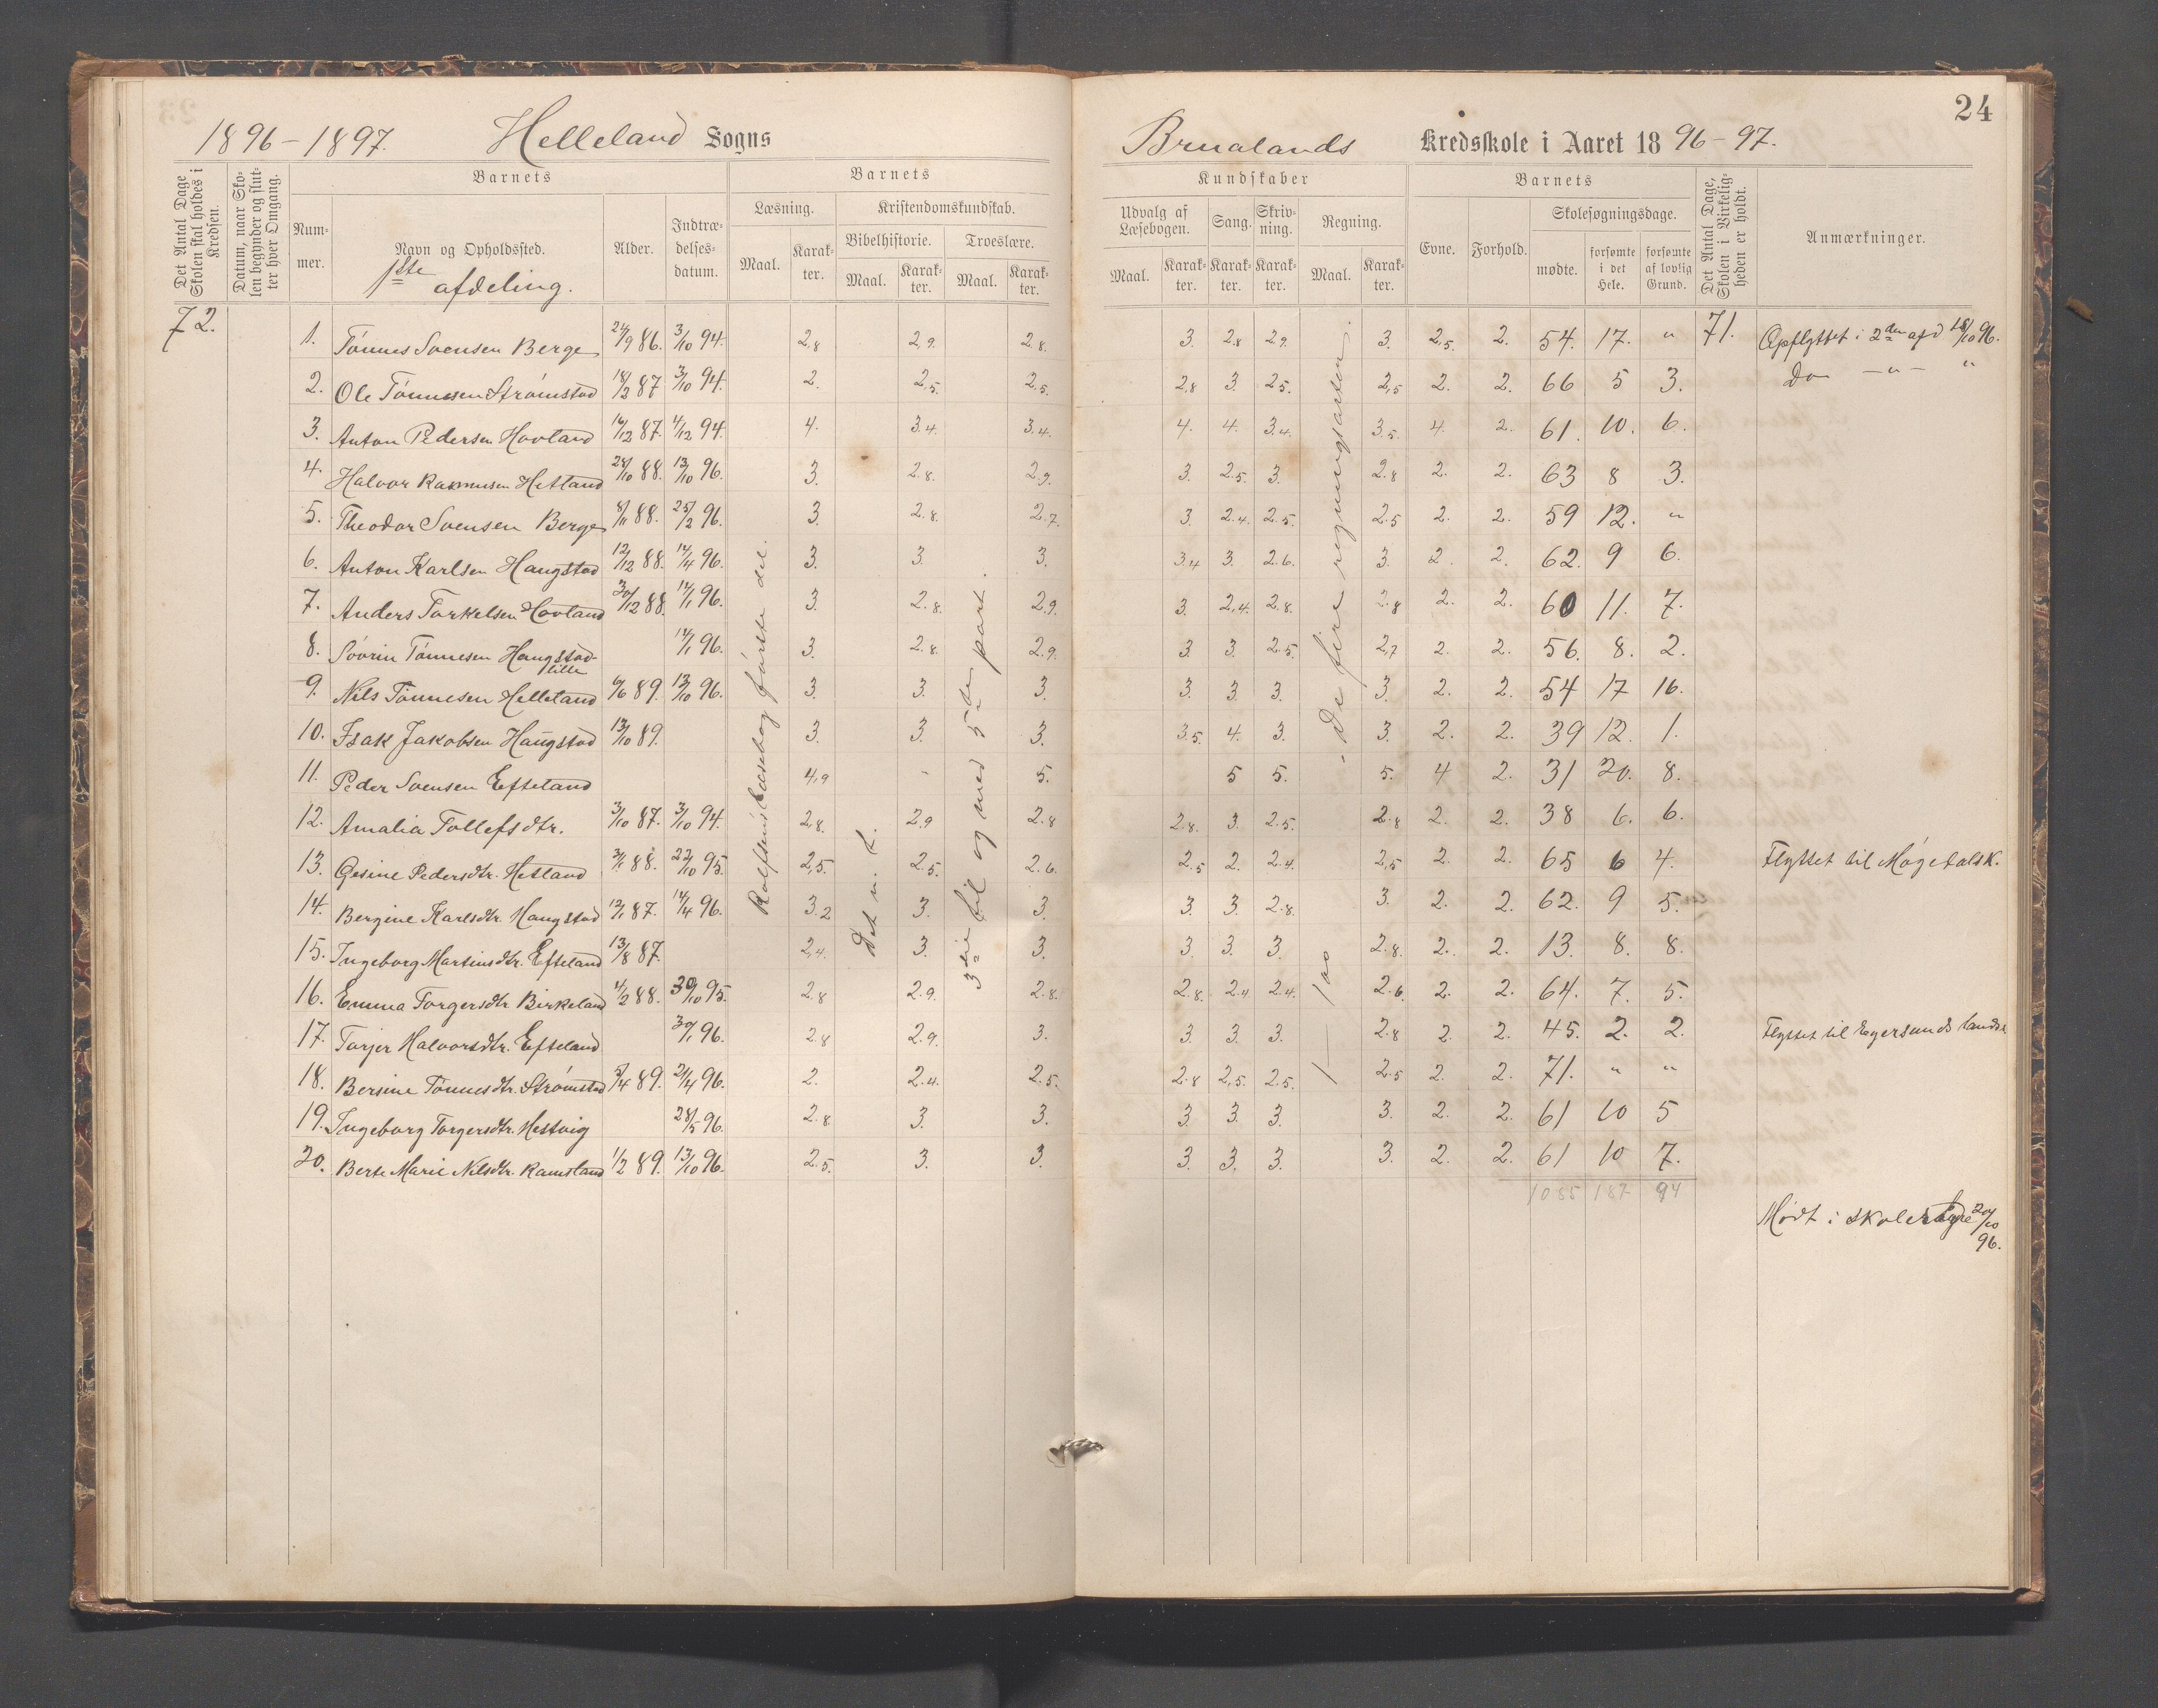 24
1896-1897. Helleland Sogns
Brualands Kredsskole i Aaret 18 96-97.
Det Antal Dage Skolen skal holdes i Kredsen.
Datum, naar Skolen begynder og slutter hver Omgang.
Barnets
Nummer.
Navn og Opholdssted.
1ste afdeling.
Alder.
Indtrædelsesdatum.
Barnets
Læsning.
Maal.
Karakter.
Kristendomskundskab.
Bibelhistorie.
Maal.
Karakter.
Troeslære.
Maal.
Karakter.
Kundskaber
Udvalg af Læsebogen.
Maal.
Karakter.
Sang.
Karakter.
Skrivning.
Karakter.
Regning.
Maal.
Karakter.
Barnets
Evne.
Forhold.
Skolesøgningsdage.
mødte.
forsømte i det Hele.
forsømte af lovlig Grund.
Det Antal Dage, Skolen i Virkeligheden er holdt.
Anmærkninger.
72.
1. Tönnes Svensen Berge 24/9 86. 3/10 94. 2,8 2,9. 2.8. 3. 2.8 2.9. 3. 2,5. 2. 54. 17. " 71. Opflyttet i 2den afd 18/10 96.
2. Ole Tönnesen Strömstad 18/2 87 3/10 94. 2. 2,5. 2.5. 2,8 3. 2.5. 2,5 2. 2. 66 5 3. do -"- "
3. Anton Pedersen Hovland 16/12 87. 4/12 94. 4. 3.4. 3.4. 4. 4. 3.4. 3.5. 4. 2. 61. 10. 6.
4. Halvor Rasmusen Hetland 28/10 88. 13/10 96. 3. 2.8. 2.9. 3. 2.5. 3. 2.8 2. 2. 63 8 3.
5. Theodor Svensen Berge 8/11 88. 25/2 96. 3. 2.8. 2.7. 3. 2.4. 2.5. 2.5 2. 2. 59 12. "
6. Anton Karlsen Haugstad 12/12 88. 14/4 96. 3. 3. 3. 3.4 3. 2.6. 3. 2. 2. 62. 9 6.
7. Anders Torkelsen Hovland 30/12 88. 14/1 96. 3. 2.8. 2,9. 3. 2,4. 2.8. 2.8 2. 2. 60 11. 7.
8. Sövrin Tönnesen Haugstad 14/1 96. 3. 2.8. 2.9. 3 3. 2.5. 2,7 2. 2. 56. 8. 2.
lille
9. Nils Tönnesen Helleland 6/6 89. 13/10 96. 3. 3. 3. 3. 3. 3. 3. 2. 2. 54 17 16.
10. Isak Jakobsen Haugstad 13/10 89. 3. 3. 3. 3.5. 4. 3. 3. 2. 2. 39 12. 1.
11. Peder Svensen Efteland 4,9 5. 5 5. 5. 4 2. 31 20. 8.
12. Amalia Tollefsdtr. 3/10 87. 3/10 94. 2,8. 2.9 2.8 2.8. 3. 2.5. 2.8 2. 2. 38 6. 6.
13. Gesine Pedersdtr. Hetland 3/1 88. 22/10 95. 2,5. 2.5. 2.6. 2.5 2. 2.4. 2,5 2. 2. 65 6 4. Flyttet til Møgedals K.
14. Bergine Karlsdtr. Haugstad 12/1 87. 14/4 96. 3.2 3. 3. 3. 3. 2.8. 3. 2. 2. 62. 9 5.
15. Ingeborg Martinsdtr. Efteland 13/8 87. 2,4. 3. 3. 3. 3. 3. 2.8. 2. 2. 13. 8. 8.
16. Emma Torgersdtr Birkeland 4/2 88. 30/10 95. 2.8 2.9. 2.8. 2.8. 2.4 2.4. 2.6. 2. 2. 64. 7. 5.
17. Torjer Halvorsdtr. Efteland 30/1 96. 2.8 2.9. 3. 3. 3. 3. 2.8 2. 2. 45. 2. 2. Flyttet til Egersunds landsk.
18. Bersine Tönnesdtr. Strömstad 5/4 89. 21/4 96. 2. 2.4. 2.5. 2.8 2,5. 2.5. 2.5 2. 2. 71. " "
19. Ingeborg Torgersdtr. Hestvig 28/5 96. 2.8. 3. 3. 3. 3. 3. 3. 2. 2. 61 10 5
20. Berte Marie Nilsdtr. Ramsland 1/2 89. 13/10 96. 2.5. 3. 3. 3. 3. 3. 3. 2. 2. 61 10 7.
1055 187 94
Rolfsens læsebog første del.
Det n. t.
3die til og med 5te part.
1 — 100
De fire regningsarter.
Mödt i skolestyre 20/10
96.